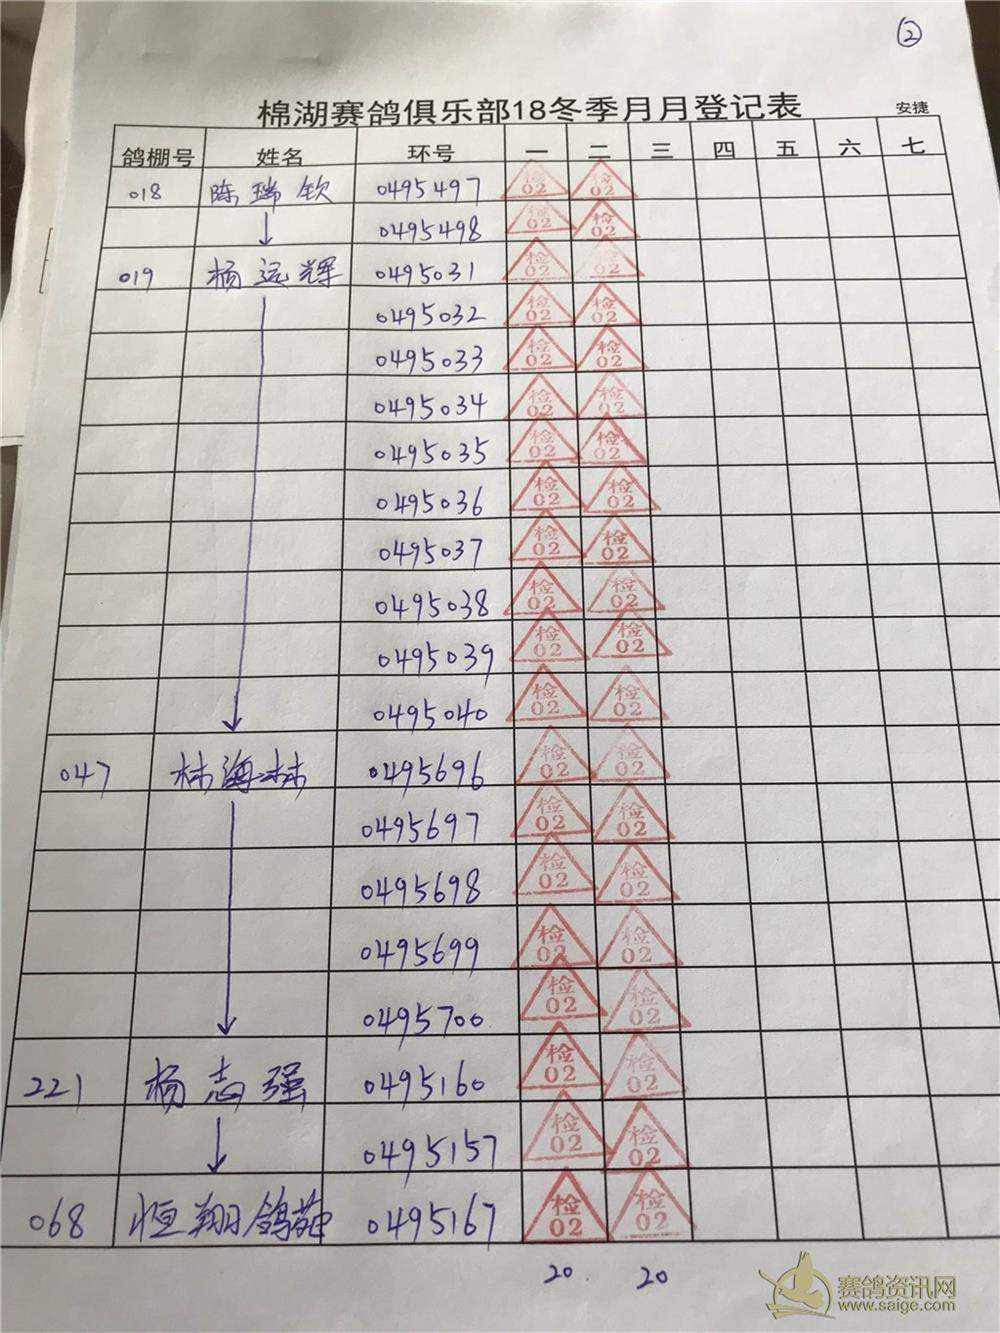 ②
棉湖赛鸽俱乐部18冬季月月登记表 安捷
鸽棚号 姓名 环号 一 二 三 四 五 六 七
018 陈瑞钦 0495497 检02 检02
↓ 0495498 检02 检02
019 杨远辉 0495031 检02 检02
0495032 检02 检02
0495033 检02 检02
0495034 检02 检02
0495035 检02 检02
0495036 检02 检02
0495037 检02 检02
0495038 检02 检02
0495039 检02 检02
↓ 0495040 检02 检02
047 林海林 0495696 检02 检02
0495697 检02 检02
0495698 检02 检02
0495699 检02 检02
↓ 0495700 检02 检02
221 杨志强 0495160 检02 检02
↓ 0495157 检02 检02
068 恒翔鸽苑 0495167 检02 检02
20. 20
赛鸽资讯网
www.saige.com